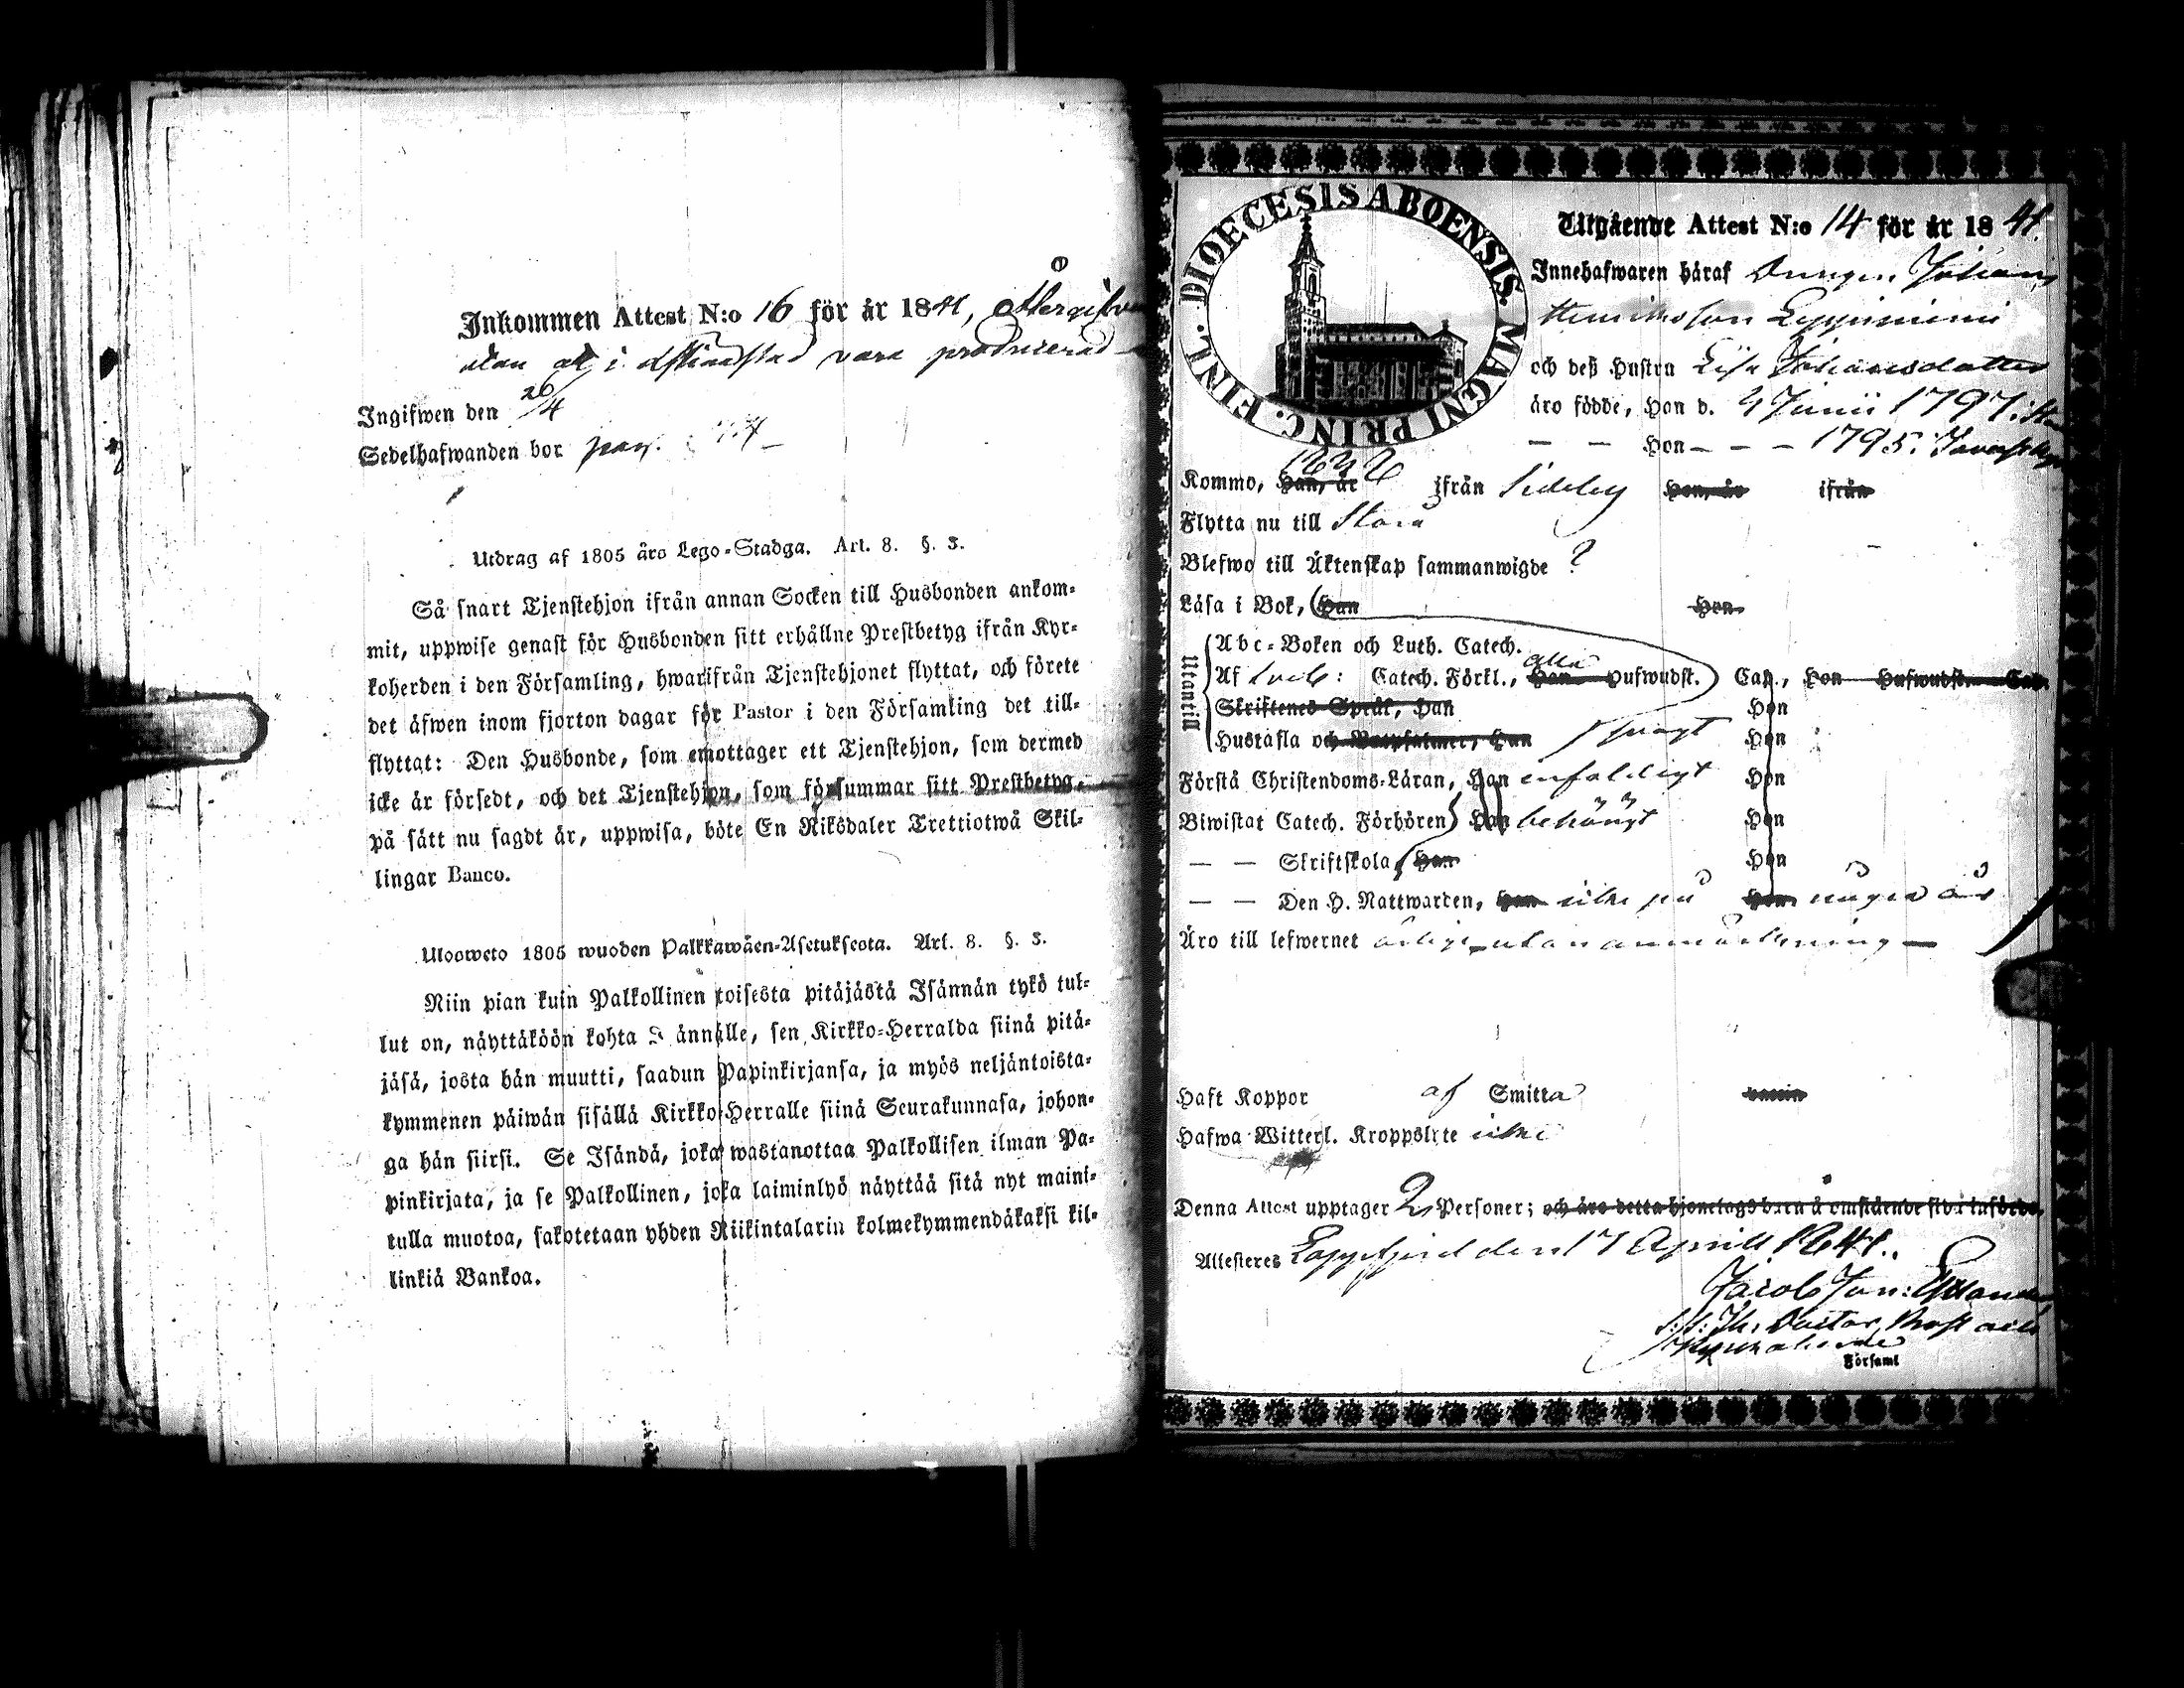 Inkommen Attest N:o 16 för år 1841, återgifven
utan at i åstadstad vara producerad
Ingifwen den 20/4
Sedelhafwanden bor pag.
Utdrag af 1805 års Lego-Stadga. Art. 8. §. 3.
Så snart Tjenstehjon ifrån annan Socken till Husbonden ankom-
mit, uppwise genast för Husbonden sitt erhållne Prestbetyg ifrån Kyr-
koherden i den Församling, hwarifrån Tjenstehjonet flyttat, och förete
det äfwen inom fjorton dagar för Pastor i den Församling det till-
flyttat: Den Husbonde, som emottager ett Tjenstehjon, som dermed
icke är försedt, och det Tjenstehjon, som försummar sitt Prestbetyg,
på sätt nu sagdt är, uppwisa, böte En Riksdaler Trettiotwå Skil-
lingar Banco.
Uloosweto 1805 wuoden Palkkawäen-Asetuksesta. Art. 8. §. 3.
Niin pian kuin Palkollinen toisesta pitäjästä Isännän tykö tul-
lut on, näyttäköön kohta I ännälle, sen Kirkko-Herralda siinä pitä-
jäsä, josta hän muutti, saadun Papinkirjansa, ja myös neljäntoista-
kymmenen päiwän sisällä Kirkko-Herralle siinä Seurakunnasa, johon-
ga hän siirsi. Se Isändä, joka wastanottaa Palkollisen ilman Pa-
pinkirjata, ja se Palkollinen, joka laiminlyö näyttää sitä nyt maini-
tulla muotoa, sakotetaan yhden Riikintalarin kolmekymmendäkaksi kil-
linkiä Bankoa.
DIOECESIS ABOENSIS. MAGNI PRINC. FINL.
Utgående Attest N:o 14 för år 1841.
Innehafwaren häraf Drengen Johan
Henriksson Leppiniemi
och deß Hustru Lisa Johansdotter
äro födde, Han d. 4 Junii 1797 i
— — Hon - - - 1795.
Kommo, Han, år 1832 ifrån Sideby Hon, år ifrån
Flytta nu till Storå
Blefwo till Äktenskap sammanwigde ?
Läsa i Bok, Han Hon
Utantill
Abc-Boken och Luth. Catech.
Af Catech. Förkl., Han alla Hufwudst. Cap., Hon Hufwudst. Cap.
Skriftenes Språk, Han Hon
Hustafla och Botpsalmer, Han svagt Hon
Förstå Christendoms-Läran, Han enfaldigt Hon
Biwistat Catech. Förhören Han behörigt Hon
— — Skriftskola, Han Hon
— — Den H. Nattwarden, Han icke på Hon några år
Äro till lefwernet ärlige utan anmärkning
Haft Koppor af Smitta vaccin
Hafwa Witterl. Kroppslyte icke
Denna Attest upptager 2 Personer; och äro detta hjonelags barn å omstående sida införde.
Attesteres Lappfjerd den 17 Aprill 1841.
Jacob Jon:
Th: Doctor, Prost och
Kyrkoherde
Församl